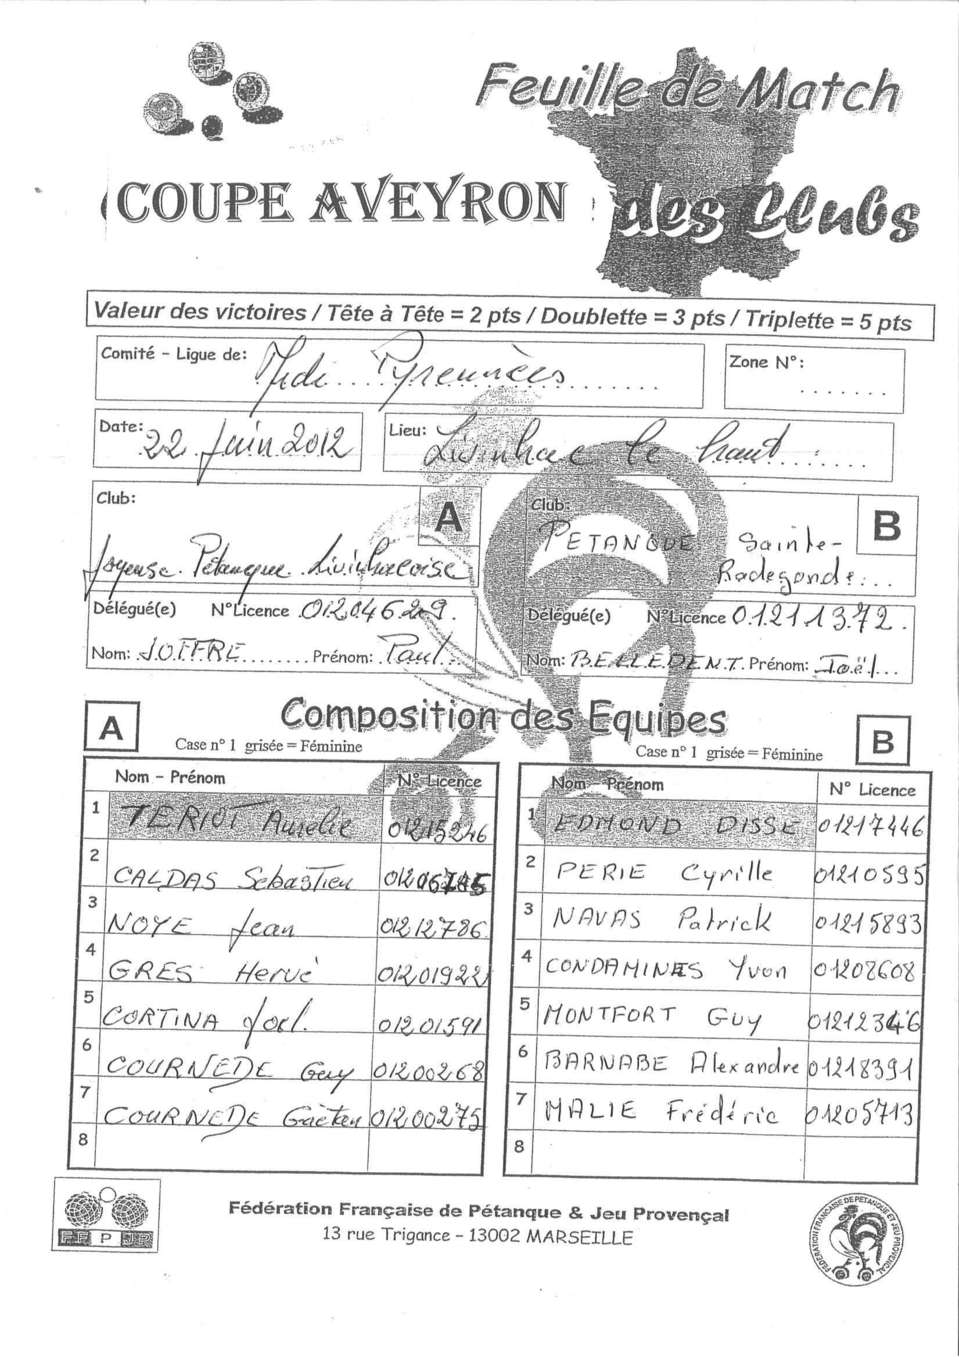 Feuille de Match
COUPE AVEYRON des Clubs
Valeur des victoires / Tête à Tête = 2 pts / Doublette = 3 pts / Triplette = 5 pts
Comité - Ligue de: Midi Pyrennèes
Zone N°:
Date: 22 Juin 2012
Lieu: Livinhac le haut
Club: A
Joyeuse Pétanque Livinhacoise
Délégué(e) N°Licence 01204629
Nom: JOFFRE Prénom: Paul
Club: B
PETANQUE Sainte-
Radegonde
Délégué(e) N°Licence 01211372
Nom: BELLEDENT Prénom: Joël
Composition des Equipes
A
Case n° 1 grisée = Féminine
Nom - Prénom N° Licence
1 TERIOT Aurelie 01215246
2 CALDAS Sebastien
3 NOYE Jean 01212786
4 GRES Hervé 01201922
5 CORTINA Joel 01201591
6 COURNEDE Guy 01200268
7 COURNEDE Gaëtan 01200275
8
B
Case n° 1 grisée = Féminine
Nom - Prénom N° Licence
1 EDMOND DISSE 01217446
2 PERIE Cyrille 01210595
3 NAVAS Patrick 01215893
4 CONDAMINES Yvon 01208608
5 MONTFORT GUY 01212346
6 BARNABE Alexandre 01218391
7 MALIE Frédéric 01205713
8
FFPJP
Fédération Française de Pétanque & Jeu Provençal
13 rue Trigance - 13002 MARSEILLE
FEDERATION FRANÇAISE DE PETANQUE ET JEU PROVENÇAL